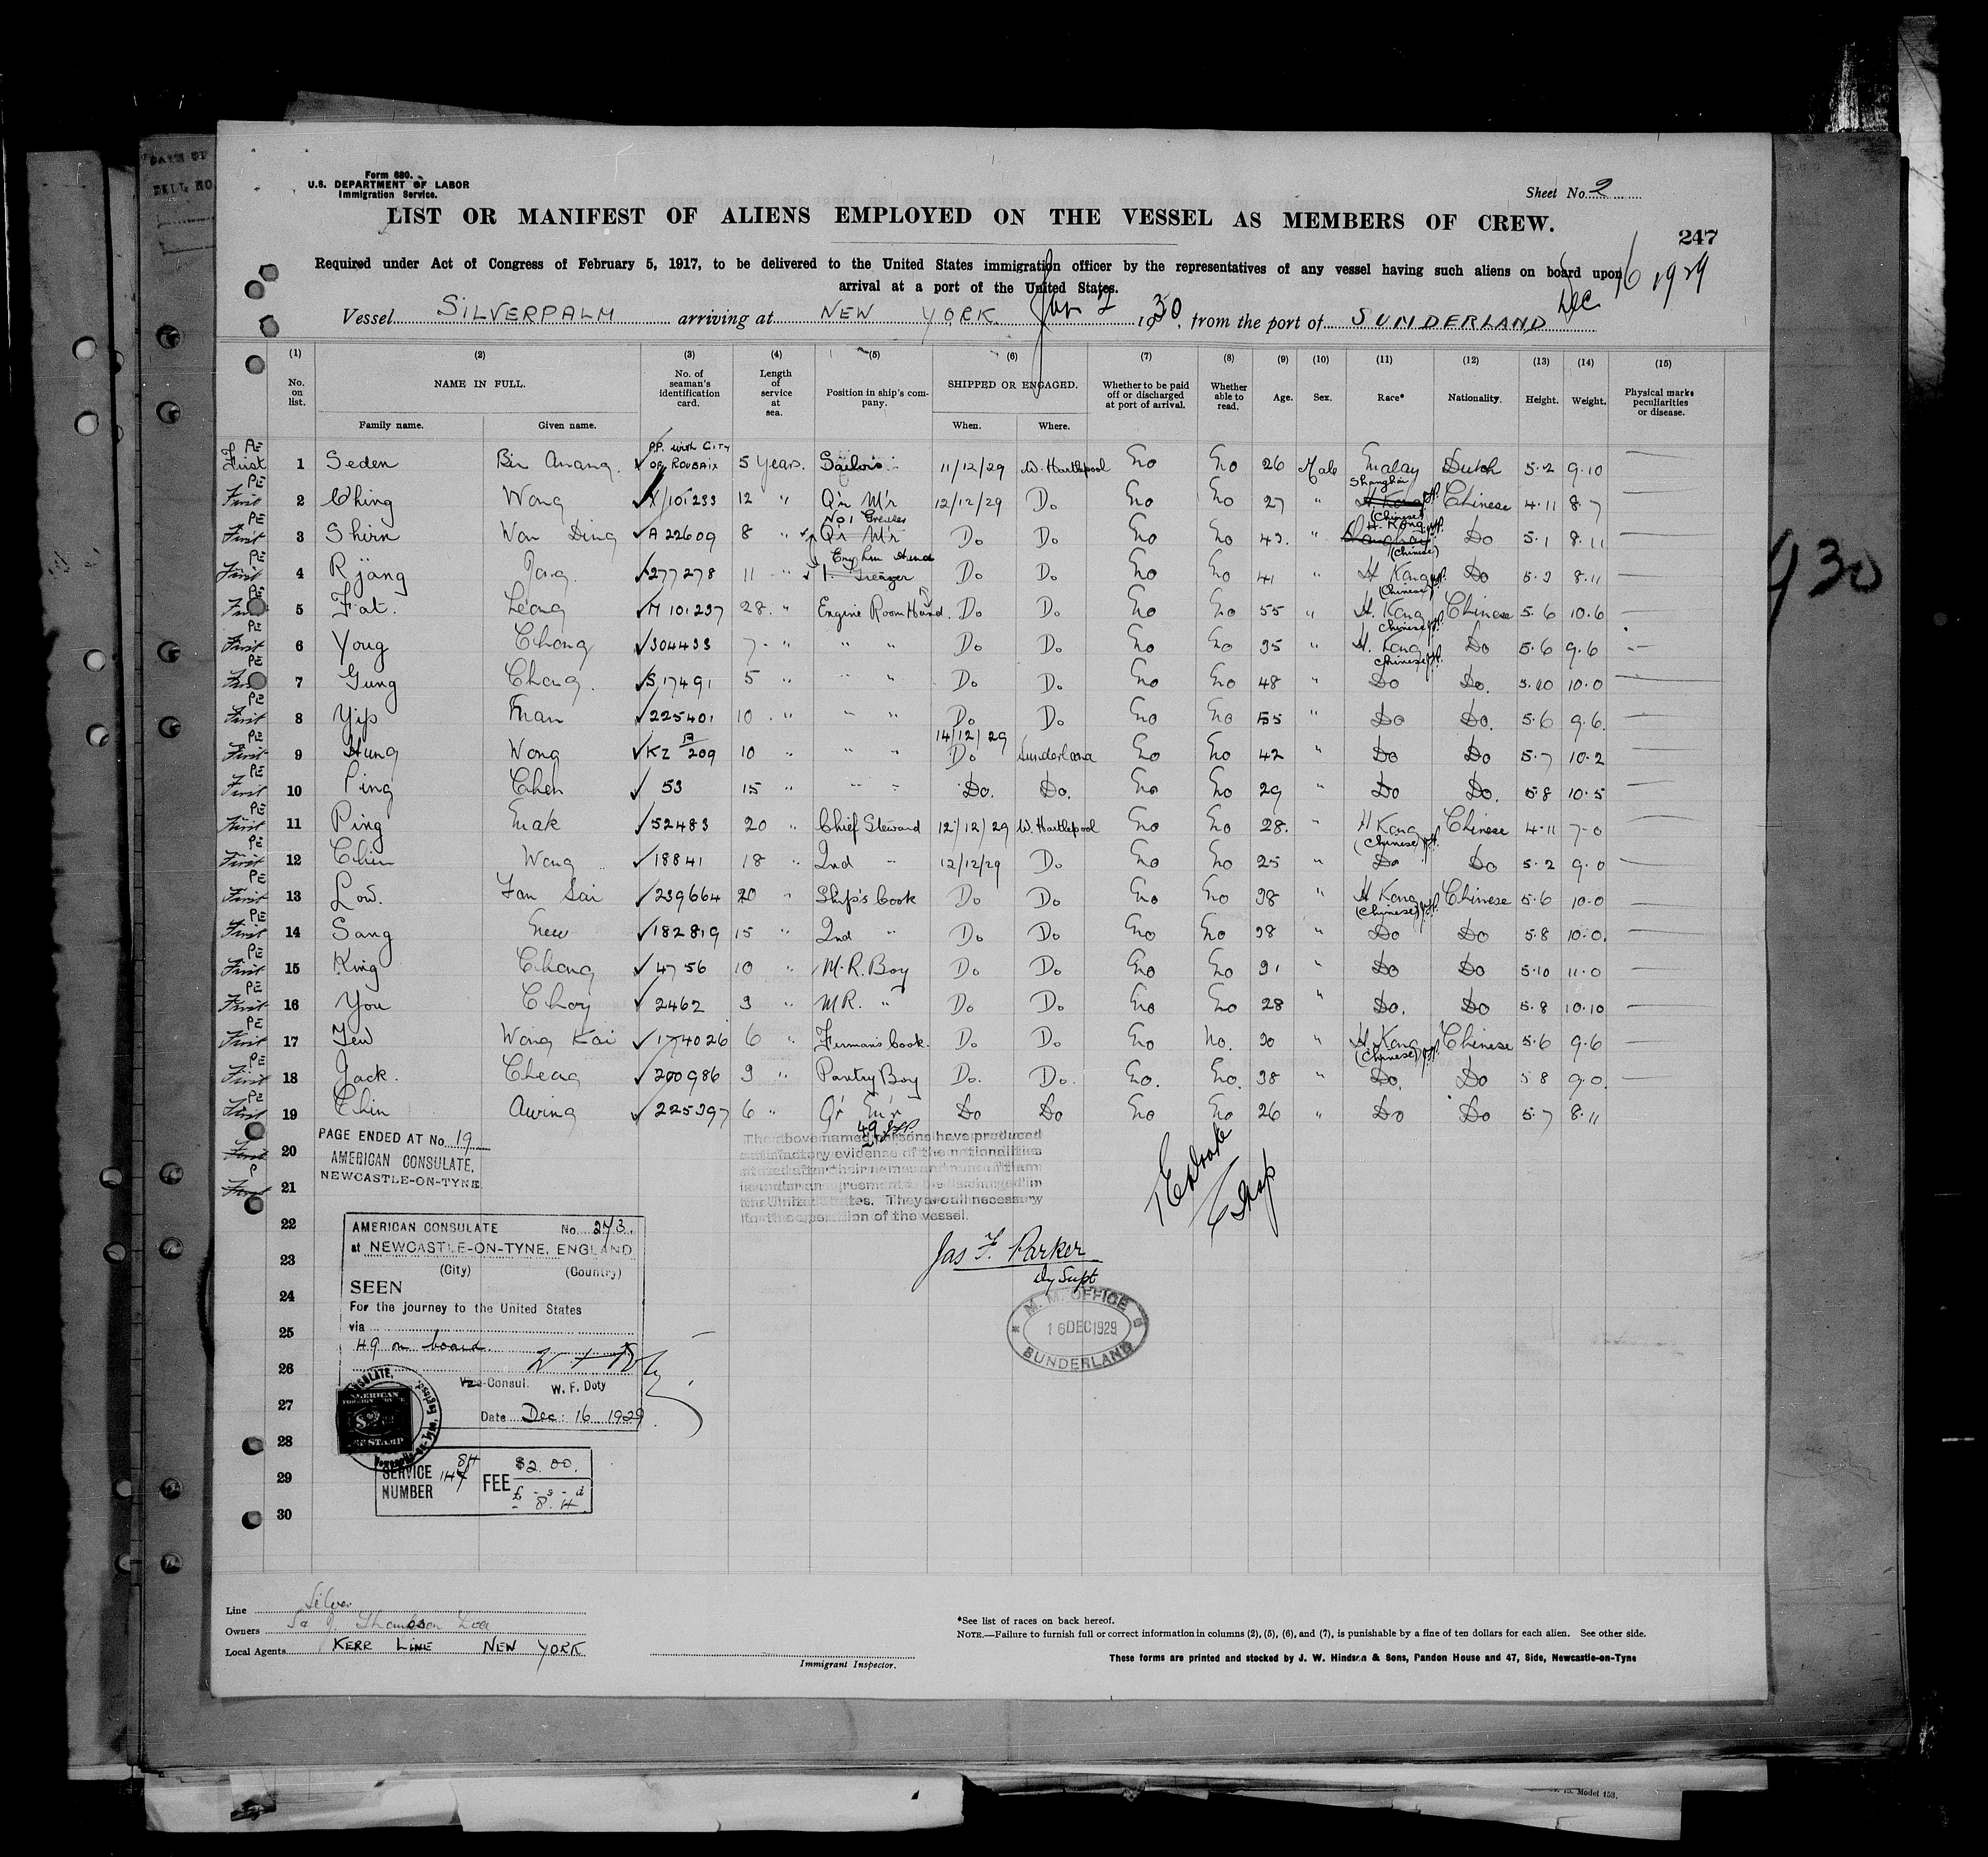 Form 680.
U.S. DEPARTMENT OF LABOR
Immigration Service.
Sheet No. 2
LIST OR MANIFEST OF ALIENS EMPLOYED ON THE VESSEL AS MEMBERS OF CREW.
247
Required under Act of Congress of February 5, 1917, to be delivered to the United States immigration officer by the representatives of any vessel having such aliens on board upon
arrival at a port of the United States.
Dec 16 1929
Vessel SILVERPALM arriving at NEW YORK Jan 2 1930, from the port of SUNDERLAND
(1) (2) (3) (4) (5) (6) (7) (8) (9) (10) (11) (12) (13) (14) (15)
No. on list. NAME IN FULL. No. of seaman's identification card. Length of service at sea. Position in ship's company. SHIPPED OR ENGAGED. Whether to be paid off or discharged at port of arrival. Whether able to read. Age. Sex. Race* Nationality. Height. Weight. Physical marks peculiarities or disease.
Family name. Given name. When. Where.
First PE 1 Seden Bin Anang. P.P. with CITY OF ROUBAIX 5 years. Sailor 11/12/29 W. Hartlepool No No 26 Male Malay Dutch 5.2 9.10
First PE 2 Ching Wong X/101233 12 " Q'r M'r 12/12/29 Do No No 27 " Shanghai H. Kong (Chinese) Chinese 4.11 8.7
First PE 3 Shirn Won Ding A 22609 8 " No 1 Greaser Q'r M'r Do Do No No 43. " H. Kong Shanghai (Chinese) Do 5.1 8.11
First PE 4 Rjang Jong. 277278 11 " Eng Rm Hand 1. Greaser Do Do No No 41 " H Kong (Chinese) Do 5.3 8.11
First PE 5 Fat. Leong M 101237 28. " Engine Room Hand. Do Do No No 55 " H. Kong Chinese Chinese 5.6 10.6
First PE 6 Yong Chong 304433 7. " " " Do Do No No 35 " H. Kong Chinese Do 5.6 9.6
First PE 7 Gung Chong. S.17491 5 " " " Do Do. No No 48 " Do Do. 5.10 10.0
First PE 8 Yip Man 225401 10. " " " Do Do No No 55 " Do Do. 5.6 9.6.
First PE 9 Hung Wong KZ 209 10 " " " 14/12/29 Do Sunderland No No 42 " Do Do 5.7 10.2
First PE 10 Ping Chen 53 15 " " " Do. Do. No No 29 " Do Do. 5.8 10.5
First PE 11 Ping Mak 52483 20 " Chief Steward 12/12/29 W. Hartlepool No No 28. " H Kong (Chinese) Chinese 4.11 7.0
First PE 12 Chin Wong 18841 18 " 2nd " 12/12/29 Do No No 25 " Do Do 5.2 9.0
First PE 13 Low. Fan Sai 239664 20 " Ship's Cook Do Do No No 38 " H Kong (Chinese) Chinese 5.6 10.0
First PE 14 Sang New 182819 15 " 2nd " Do Do No No 38 " Do Do 5.8 10.0.
First PE 15 King Chong 4756 10 " M.R. Boy Do Do No No 31 " Do Do 5.10 11.0
First PE 16 You Choy 2462 3 " M R. " Do Do No No 28 " Do. Do 5.8 10.10
First PE 17 Wong Kai 174026 6 " Firman's Cook. Do Do. No No. 30 " H. Kong (Chinese) Chinese 5.6 9.6
First PE 18 Jack. Cheng 200986 3 " Pantry Boy Do. Do. No. No. 38 " Do. Do 5 8 9.0.
First PE 19 Chin Awing 225397 6 " Q'r M'r Do Do No No 26 " Do Do 5.7 8.11
PAGE ENDED AT No. 19
AMERICAN CONSULATE,
NEWCASTLE-ON-TYNE
First 20
First 21
22
23
24
25
26
27
28
29
30
49
The above named persons have produced
satisfactory evidence of the nationalities
stated after their names and none of them
is under an agreement to be discharged in
the United States. They are all necessary
for the operation of the vessel.
Jas F. Parker
Dy Supt
M. M. OFFICE
16 DEC 1929
SUNDERLAND
AMERICAN CONSULATE No. 273.
at NEWCASTLE-ON-TYNE, ENGLAND
(City) (Country)
SEEN
For the journey to the United States
via
49 on board
Vice-Consul. W. F. Doty
Date Dec: 16 1929
SERVICE NUMBER FEE $2.00.
£ - s - d
- 8. 4
Line Silver
Owners
Local Agents KERR LINE NEW YORK
Immigrant Inspector.
*See list of races on back hereof.
NOTE.—Failure to furnish full or correct information in columns (2), (5), (6), and (7), is punishable by a fine of ten dollars for each alien. See other side.
These forms are printed and stocked by J. W. Hindson & Sons, Pandon House and 47, Side, Newcastle-on-Tyne
930
Model 153.